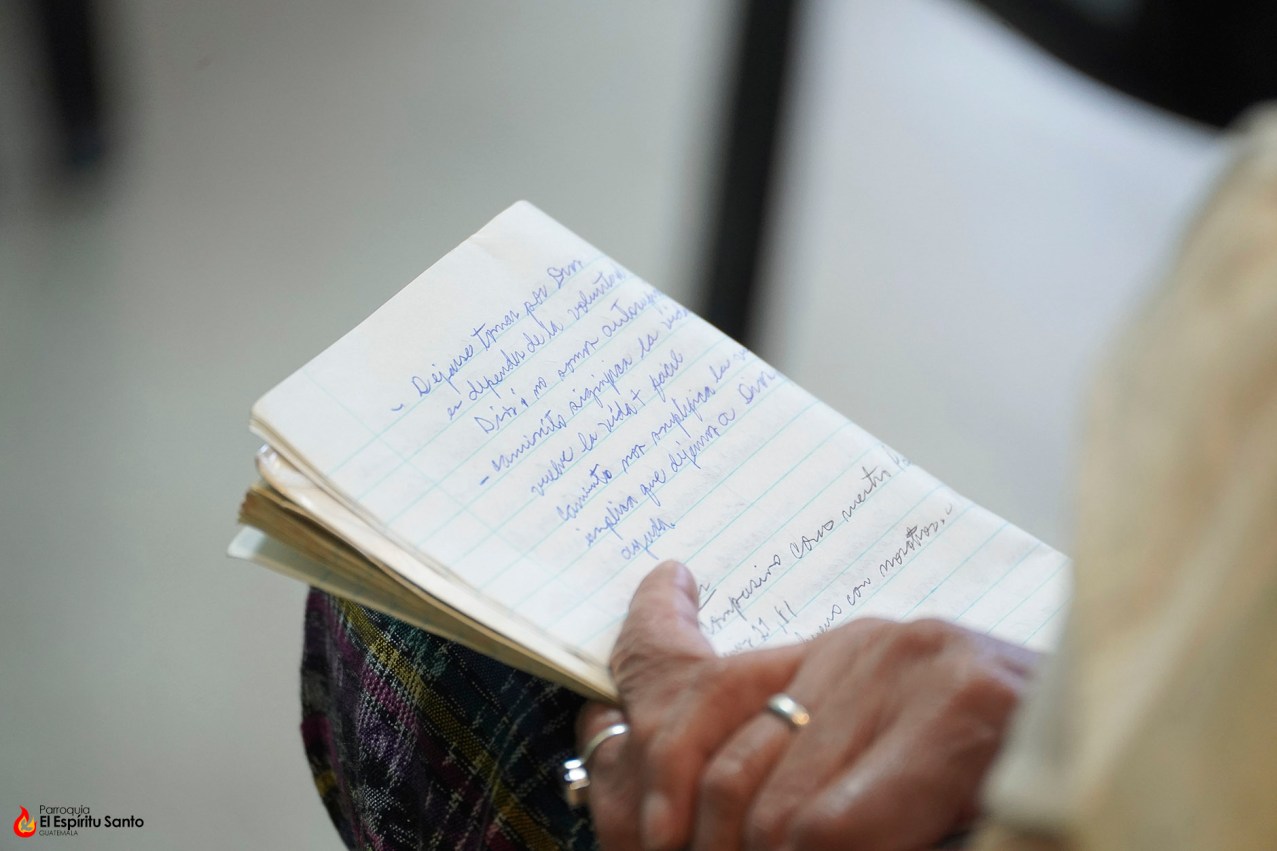 - Dejarse tomar por Dios
es depende de la voluntad
Dios, no somos
- caminito significa la vida
vuelve la vida + facil
caminito nos simplifica la
implica que dejemos a Dios
ayuda.
como nuestro
21, 11
con nosotros.
Parroquia
El Espíritu Santo
GUATEMALA